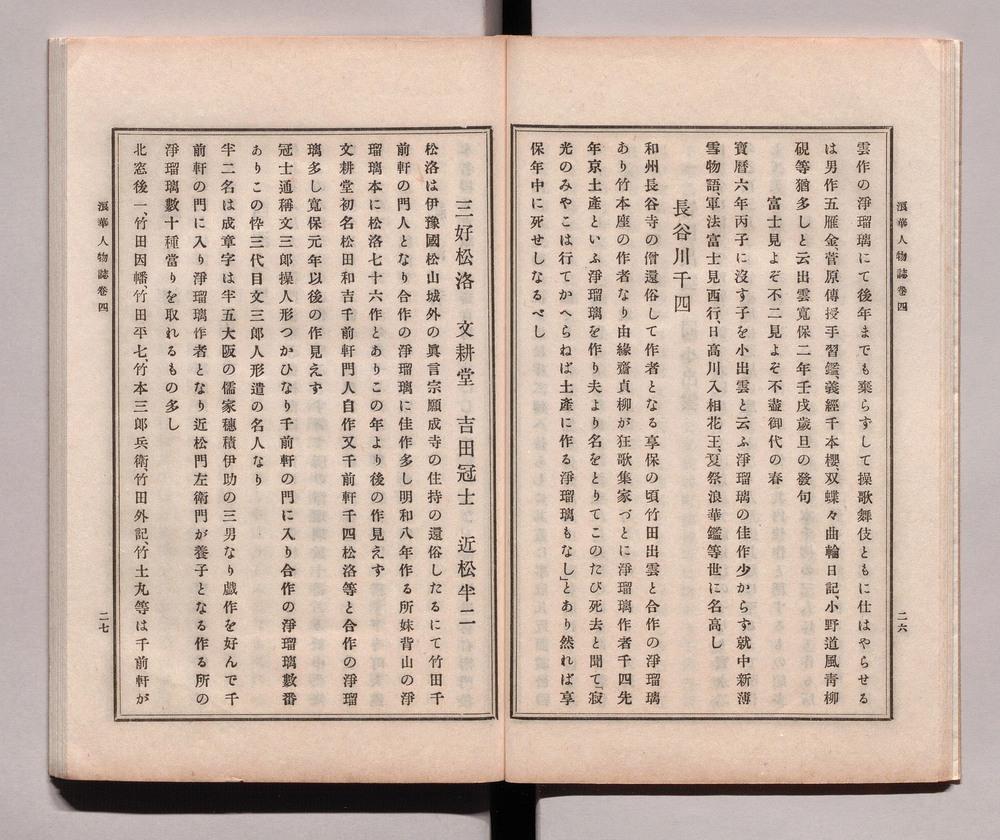 浪華人物誌卷四
二六
雲作の淨瑠璃にて後年までも棄らすして操歌舞伎ともに仕はやらせる
は男作五雁金、菅原傳授手習鑑、義經千本櫻、双蝶々曲輪日記、小野道風青柳
硯等猶多しと云出雲寬保二年壬戌歲旦の發句
富士見よぞ不二見よぞ不盡御代の春
寶曆六年丙子に沒す子を小出雲と云ふ淨瑠璃の佳作少からす就中新薄
雪物語、軍法富士見西行、日高川入相花王、夏祭浪華鑑等世に名高し
長谷川千四
和州長谷寺の僧還俗して作者となる享保の頃竹田出雲と合作の淨瑠璃
あり竹本座の作者なり由緣齋貞柳が狂歌集家づとに淨瑠璃作者千四先
年京土產といふ淨瑠璃を作り夫より名をとりてこのたび死去と聞て寂
光のみやこは行てかへらねば土產に作る淨瑠璃もなし」とあり然れば享
保年中に死せしなるべし
三好松洛 文耕堂 吉田冠士 近松半二
松洛は伊豫國松山城外の眞言宗願成寺の住持の還俗したるにて竹田千
前軒の門人となり合作の淨瑠璃に佳作多し明和八年作る所妹背山の淨
瑠璃本に松洛七十六作とありこの年より後の作見えす
文耕堂初名松田和吉千前軒門人自作又千前軒千四松洛等と合作の淨瑠
璃多し寬保元年以後の作見えす
冠士通稱文三郎操人形つかひなり千前軒の門に入り合作の淨瑠璃數番
ありこの忰三代目文三郎人形遣の名人なり
半二名は成章字は半五大阪の儒家穗積伊助の三男なり戲作を好んで千
前軒の門に入り淨瑠璃作者となり近松門左衛門が養子となる作る所の
淨瑠璃數十種當りを取れるもの多し
北窓後一、竹田因幡、竹田平七、竹本三郎兵衛、竹田外記、竹土丸等は千前軒が
浪華人物誌卷四
二七